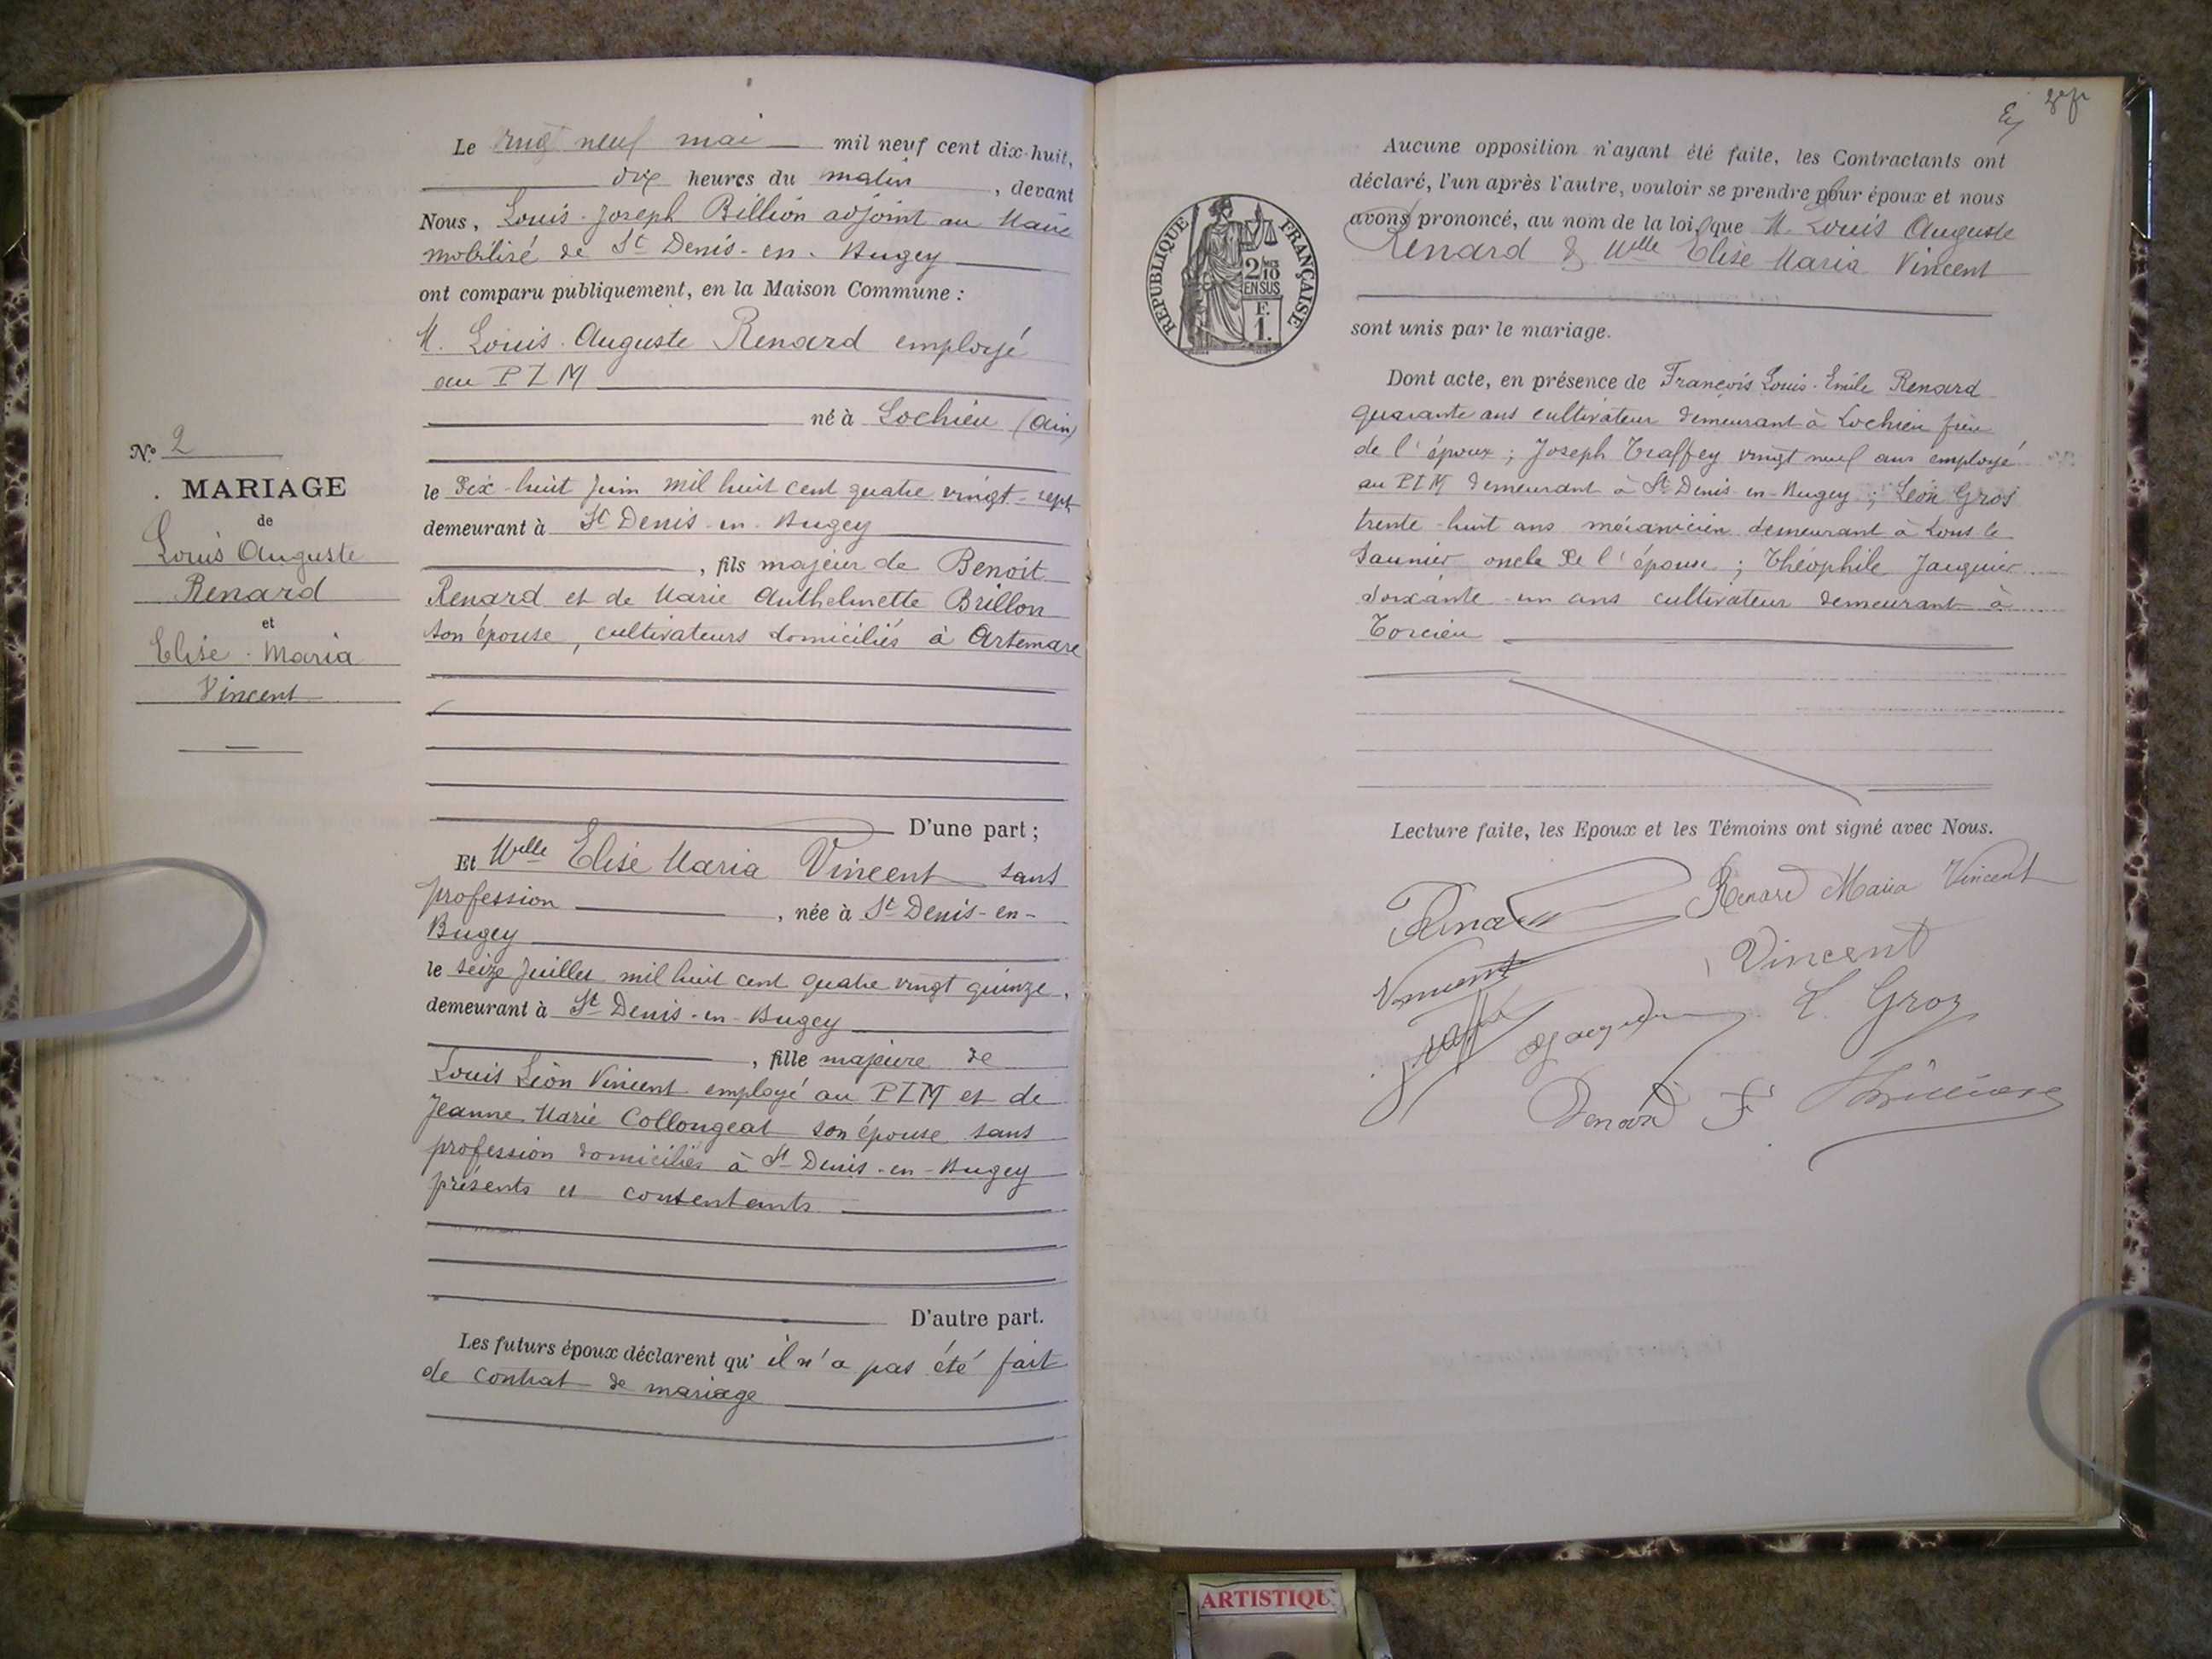 N° 2
. MARIAGE
de
Louis Auguste
Renard
et
Elise . Maria
Vincent
Le vingt neuf mai mil neuf cent dix-huit,
dix heures du matin , devant
Nous, Louis Joseph Billion adjoint au Maire
mobilisé de St Denis-en-Bugey
ont comparu publiquement, en la Maison Commune :
M. Louis Auguste Renard employé
au PLM
né à Lochieu (Ain)
le dix-huit juin mil huit cent quatre vingt-sept
demeurant à St Denis-en-Bugey
, fils majeur de Benoit
Renard et de Marie Anthelmette Brillon
son épouse, cultivateurs domiciliés à Artemare
D'une part ;
Et Melle Elise Maria Vincent sans
profession , née à St Denis-en-
Bugey
le seize juillet mil huit cent quatre vingt quinze,
demeurant à St Denis-en-Bugey
, fille majeure de
Louis Léon Vincent employé au PLM et de
Jeanne Marie Collongeat son épouse sans
profession domiciliés à St Denis-en-Bugey
présents et consentants
D'autre part.
Les futurs époux déclarent qu'il n'a pas été fait
de contrat de mariage
Aucune opposition n'ayant été faite, les Contractants ont
déclaré, l'un après l'autre, vouloir se prendre pour époux et nous
avons prononcé, au nom de la loi, que M. Louis Auguste
Renard & Melle Elise Maria Vincent
sont unis par le mariage.
Dont acte, en présence de François Louis-Emile Renard
quarante ans cultivateur demeurant à Lochieu frère
de l'époux ; Joseph Traffey vingt neuf ans employé
au PLM demeurant à St Denis-en-Bugey ; Léon Gros
trente-huit ans mécanicien demeurant à Lons le
Saunier oncle de l'épouse ; Théophile Jacquier
soixante-un ans cultivateur demeurant à
Torcieu
Lecture faite, les Epoux et les Témoins ont signé avec Nous.
Renard Maria Vincent
Vincent
Vincent
L. Groz
Renard F
RÉPUBLIQUE FRANÇAISE
2/10
EN SUS
F.
1.
ARTISTIQU